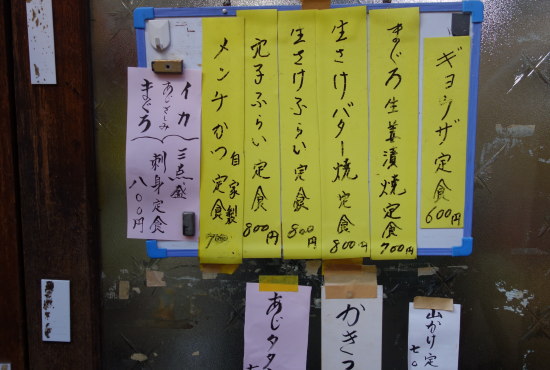 ギョウザ定食 600円
まぐろ生姜漬焼定食 700円
生さけバター焼定食 800円
生さけふらい定食 800円
ふらい定食 800円
自家製
メンチかつ定食
イカ
まぐろ
三点盛
刺身定食
八〇〇円
あじ
かき
山かけ定
七〇